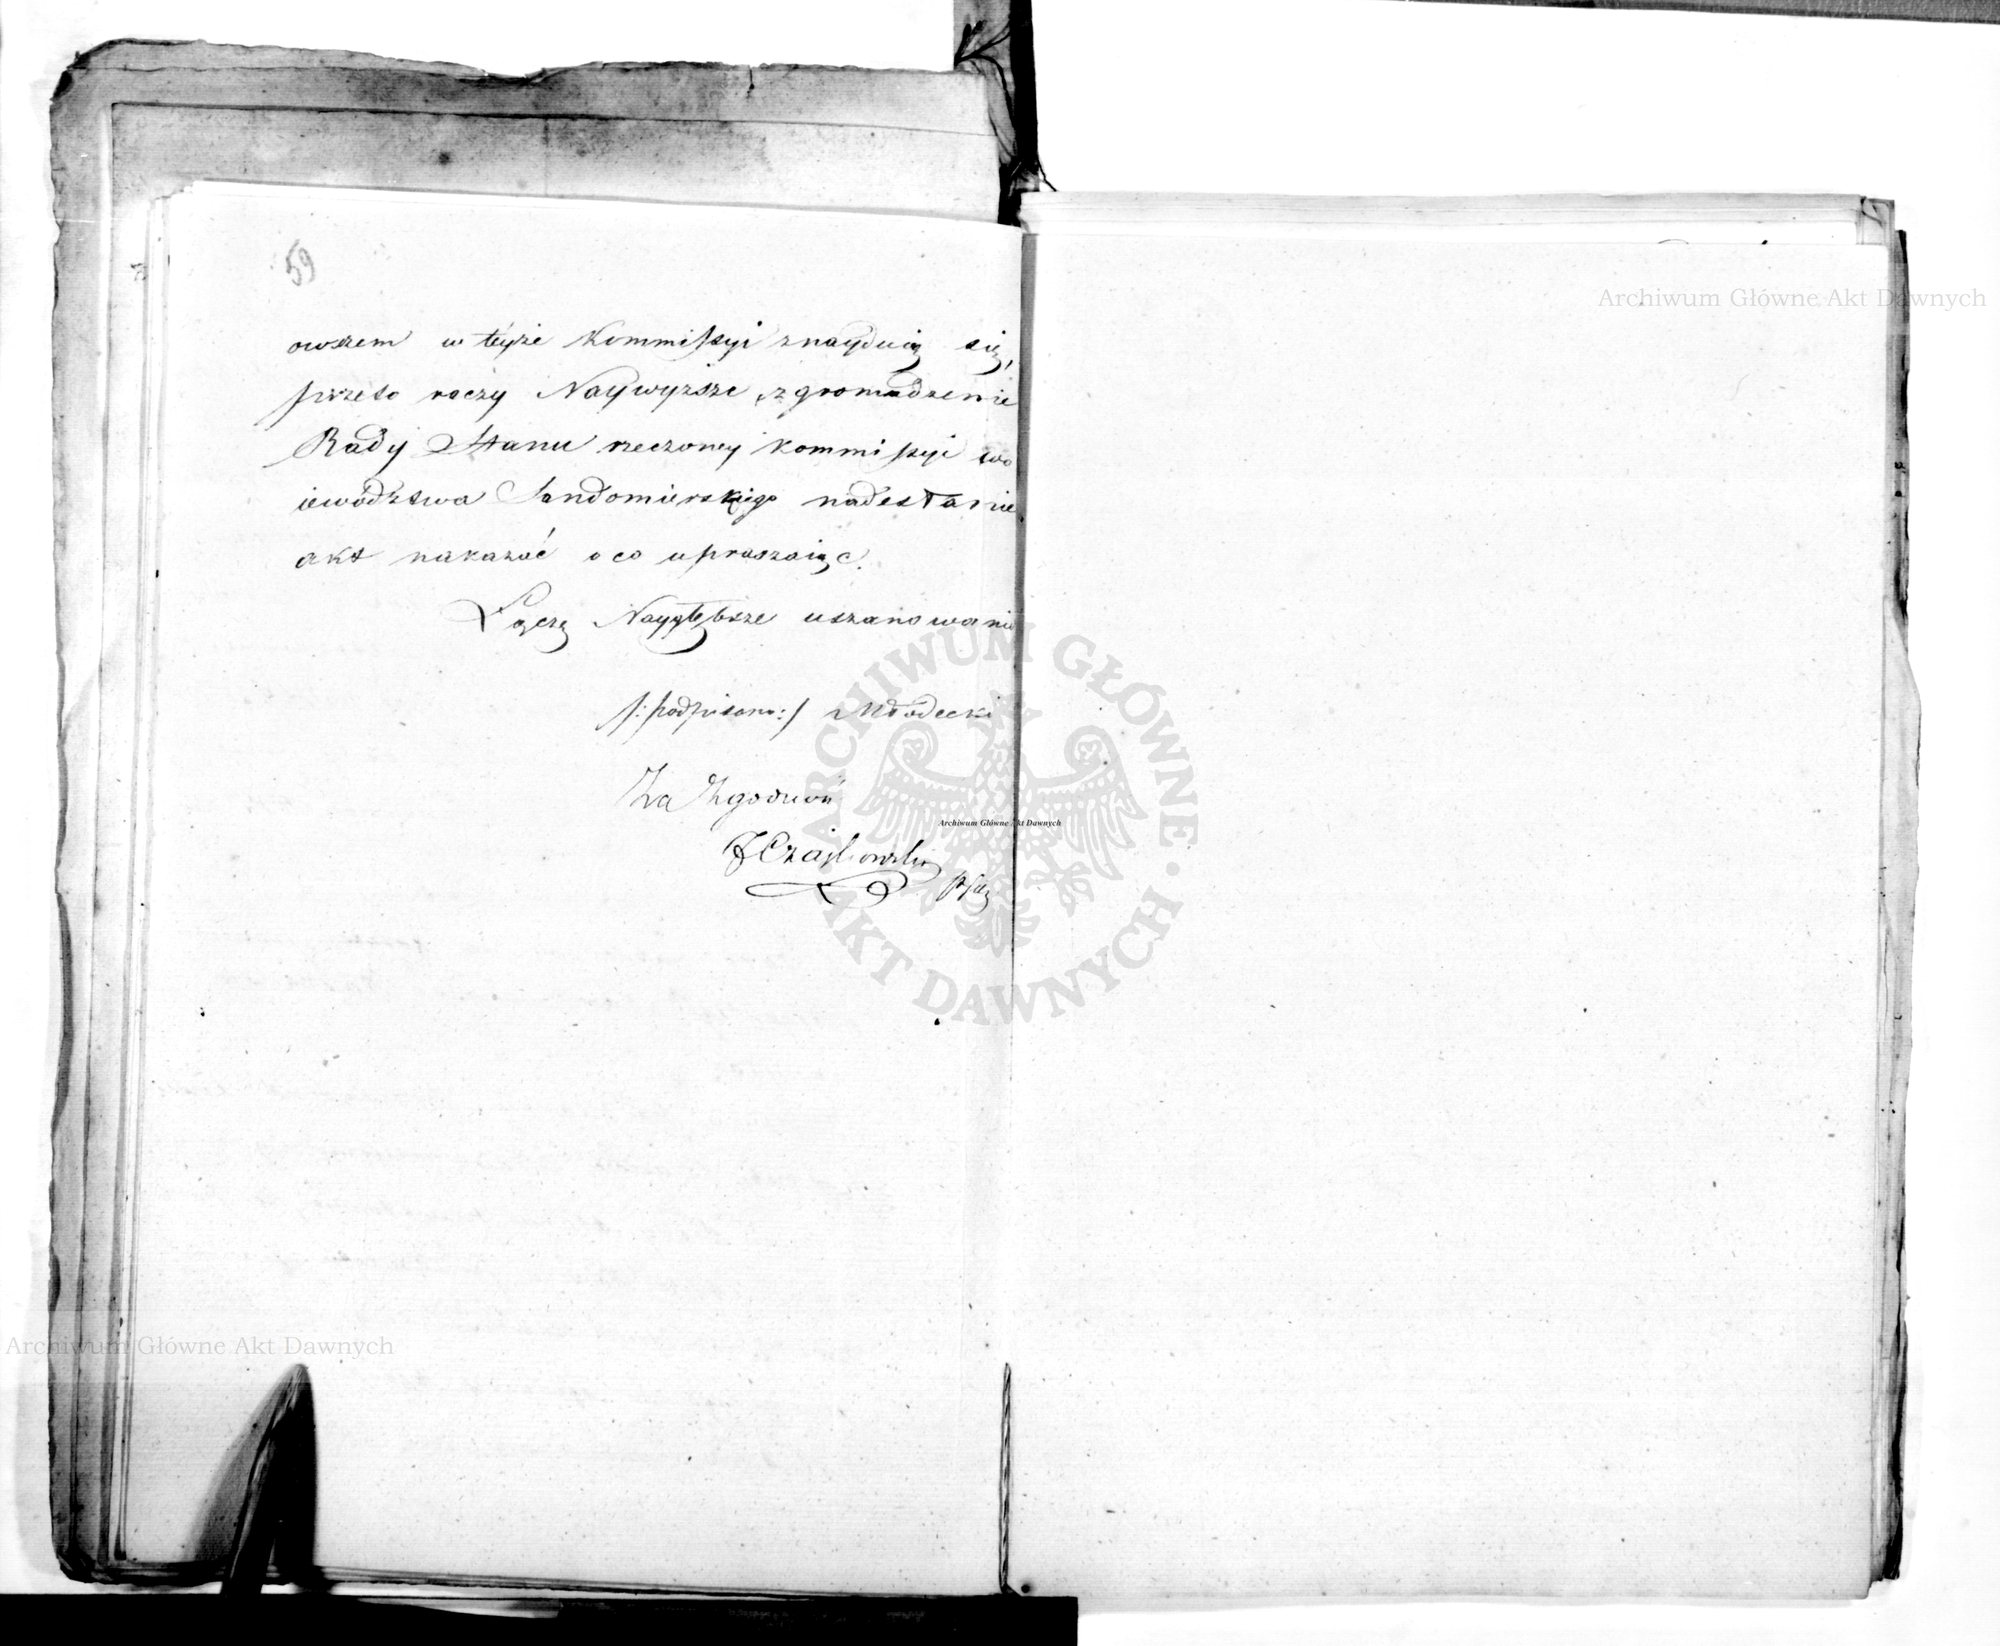 59
owszem w teyże Kommissyi znayduią się,
przeto raczy Naywyższe zgromadzenie
Rady Stanu rzeczoney Kommissyi wo
iewództwa Sandomierskiego nadesłanie
akt nakazać o co upraszaiąc.
Łączę Naygłębsze uszanowanie
/:podpisano:/ Młodecki
Za Zgodność
Czajkowski
Archiwum Główne Akt Dawnych
Archiwum Główne Akt Dawnych
Archiwum Główne Akt Dawnych
ARCHIWUM GŁÓWNE AKT DAWNYCH